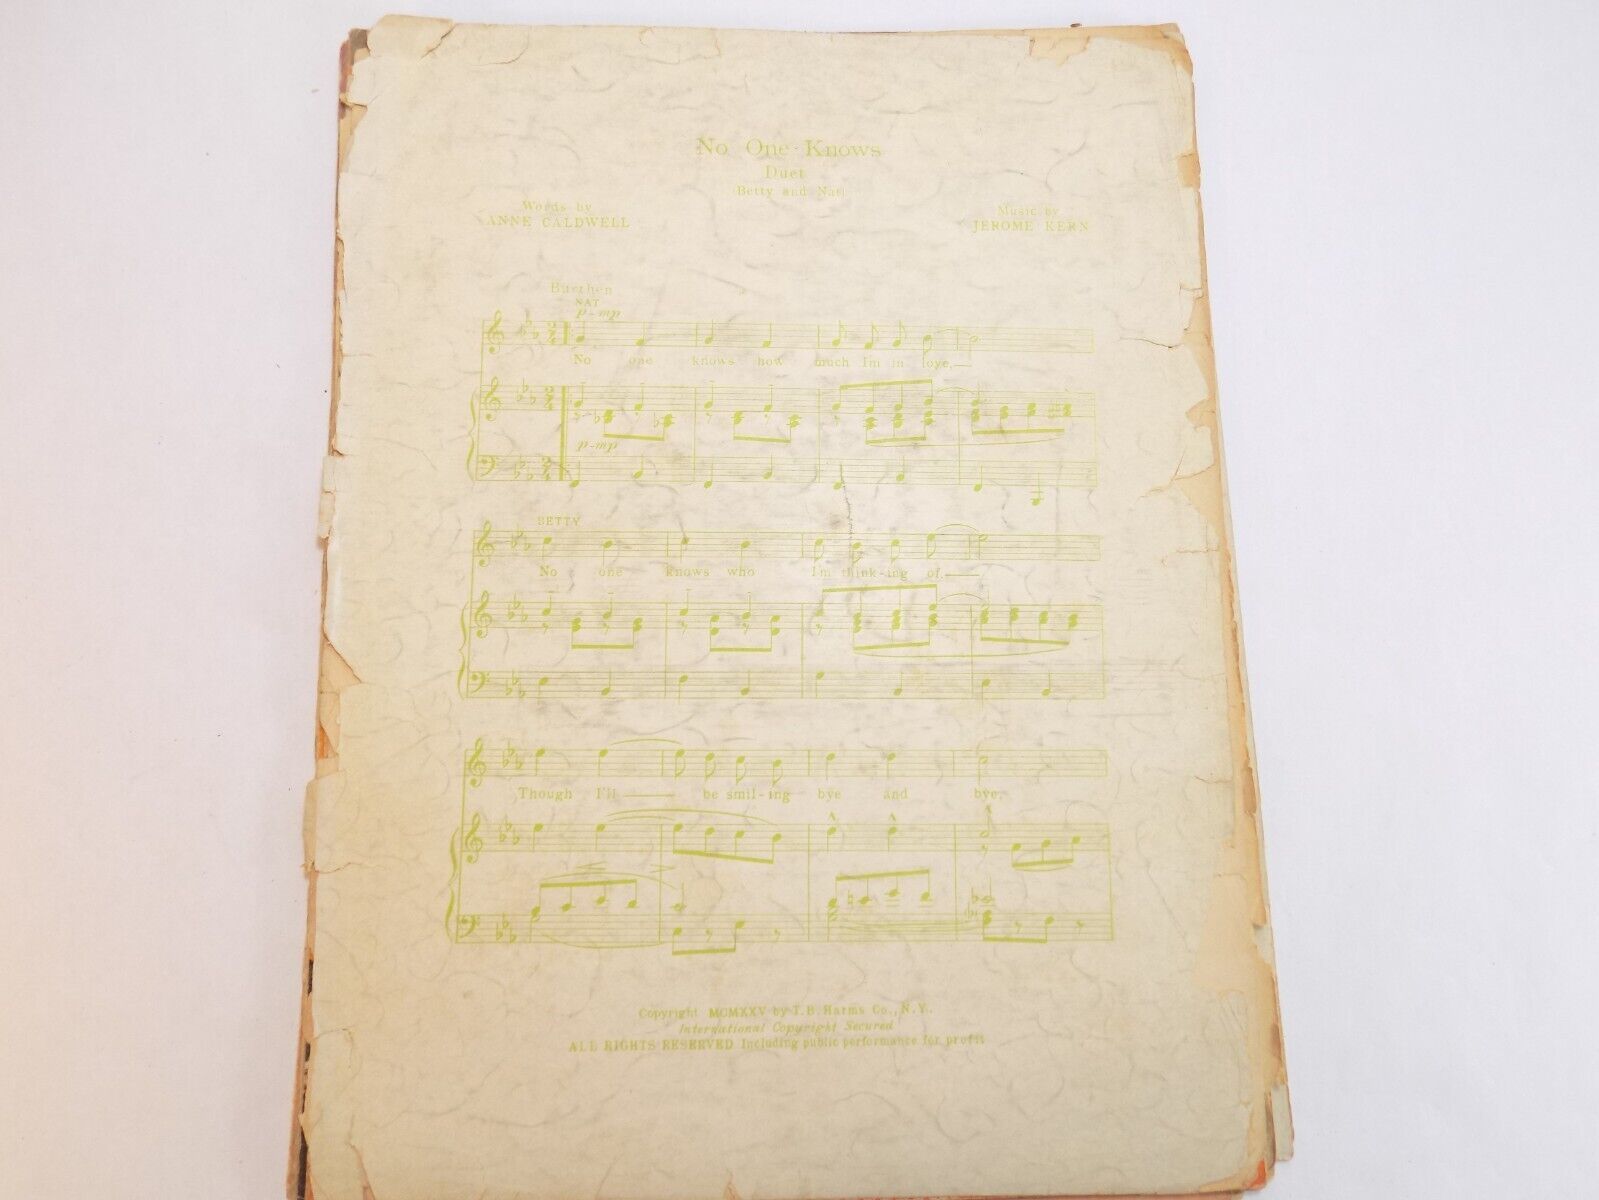 No One Knows
Duet
(Betty and Nat)
Words by
ANNE CALDWELL
Music by
JEROME KERN
Burthen
NAT
p-mp
No one knows how much I'm in love,
p-mp
BETTY
No one knows who I'm think-ing of.
Though I'll be smil-ing bye and bye,
Copyright MCMXXV by T.B. Harms Co., N.Y.
International Copyright Secured
ALL RIGHTS RESERVED Including public performance for profit